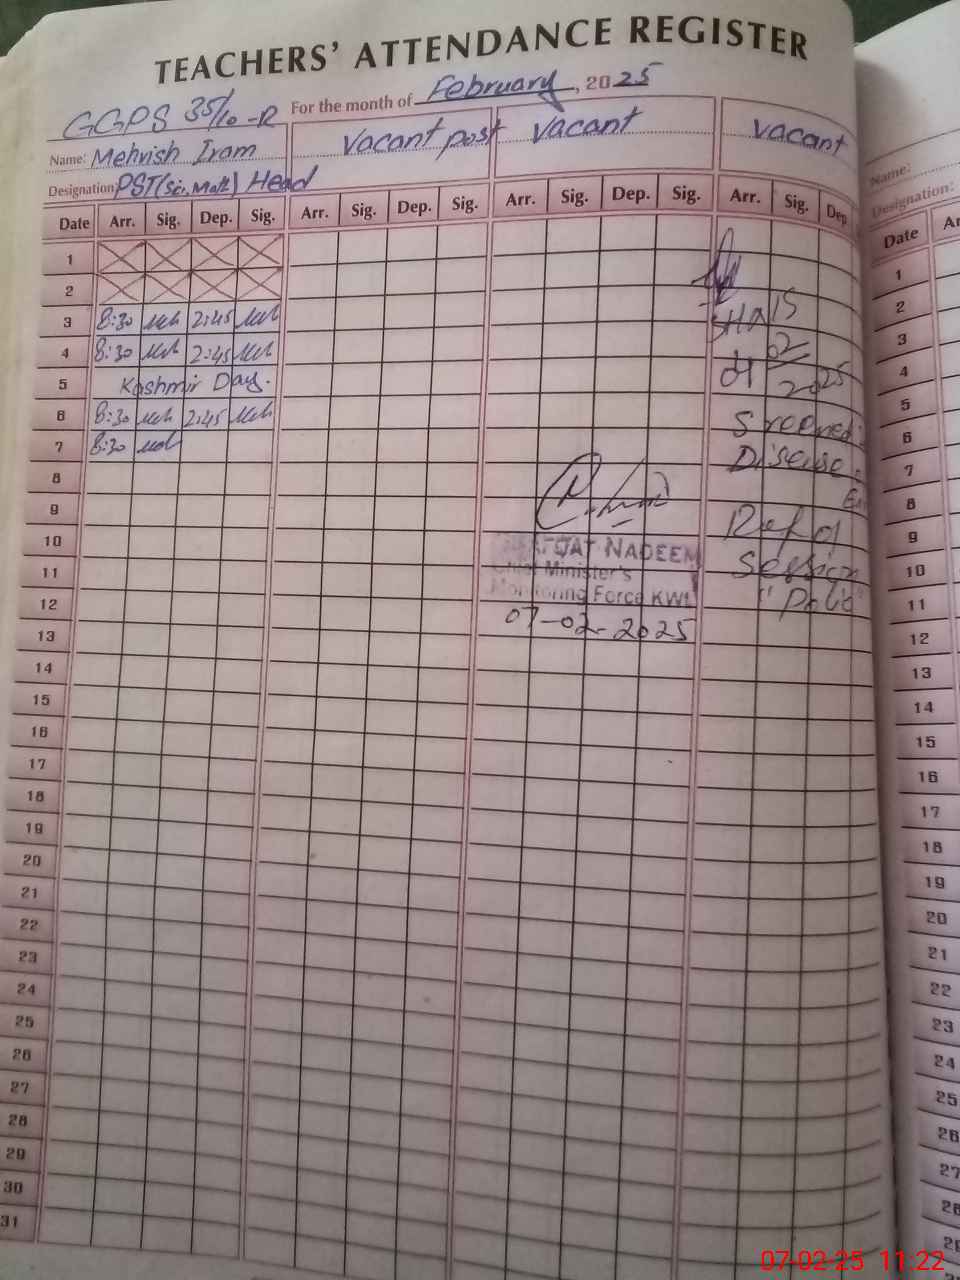 TEACHERS' ATTENDANCE REGISTER
GGPS 35/10-R For the month of February, 2025
Name: Mehvish Iram Vacant post Vacant Vacant
Designation PST(Sci, Math) Head
Date Arr. Sig. Dep. Sig. Arr. Sig. Dep. Sig. Arr. Sig. Dep. Sig. Arr. Sig. Dep
1
2
3 8:30 Meh 2:45 Meh
4 8:30 Meh 2:45 Meh
5 Kashmir Day.
6 8:30 Meh 2:45 Meh
7 8:30 Meh
8
9
10
11
12
13
14
15
16
17
18
19
20
21
22
23
24
25
26
27
28
29
30
31
02
2025
Disease
Session
NADEEM
Chief Minister's
Monitoring Force KWL
07-02-2025
Name:
Designation:
Date
1
2
3
4
5
6
7
8
9
10
11
12
13
14
15
16
17
18
19
20
21
22
23
24
25
26
27
07-02-25 11:22